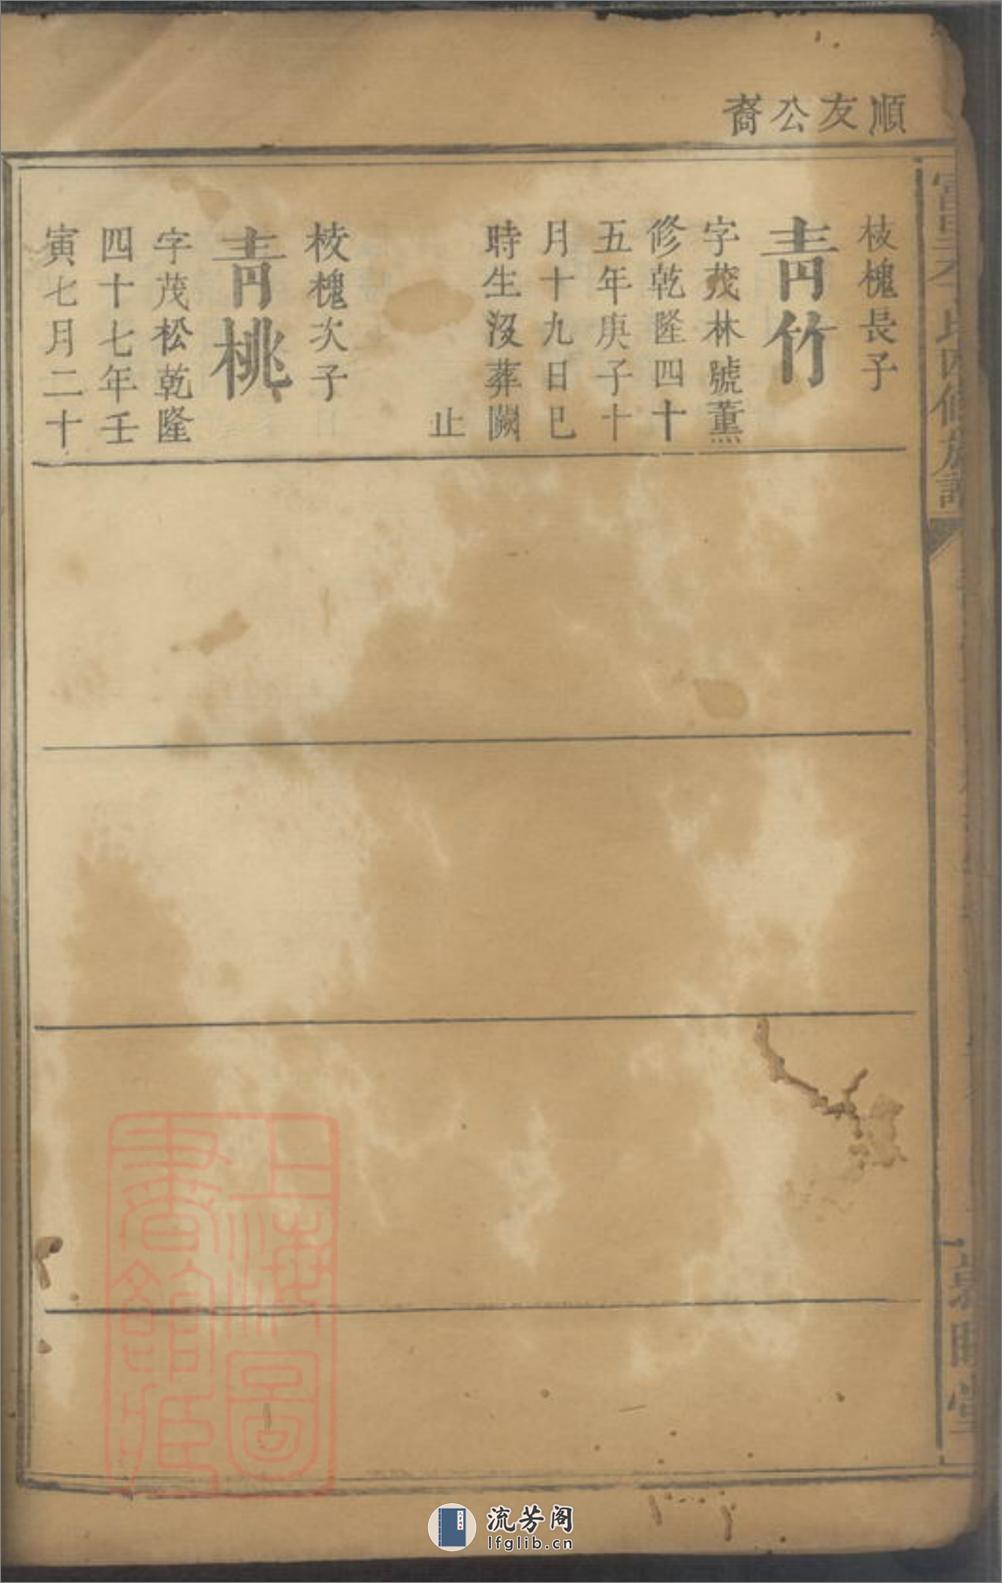 順友公裔
枝槐長子
青竹
字茂林號薰
修乾隆四十
五年庚子十
月十九日巳
時生沒葬闕
止
枝槐次子
青桃
字茂松乾隆
四十七年壬
寅七月二十
四修族譜
堂
上海圖
書館藏
流芳阁
lfglib.cn